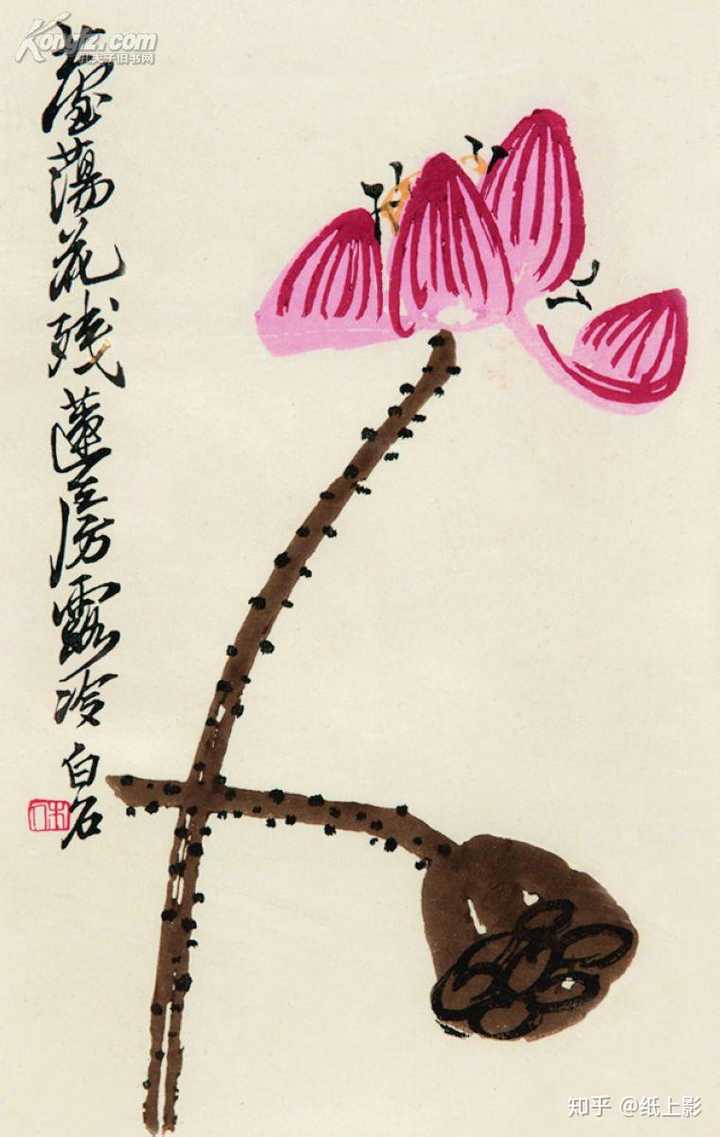 Kongfz.com
孔夫子旧书网
蘆蕩花残蓮房露冷 白石
木人
知乎 @纸上影